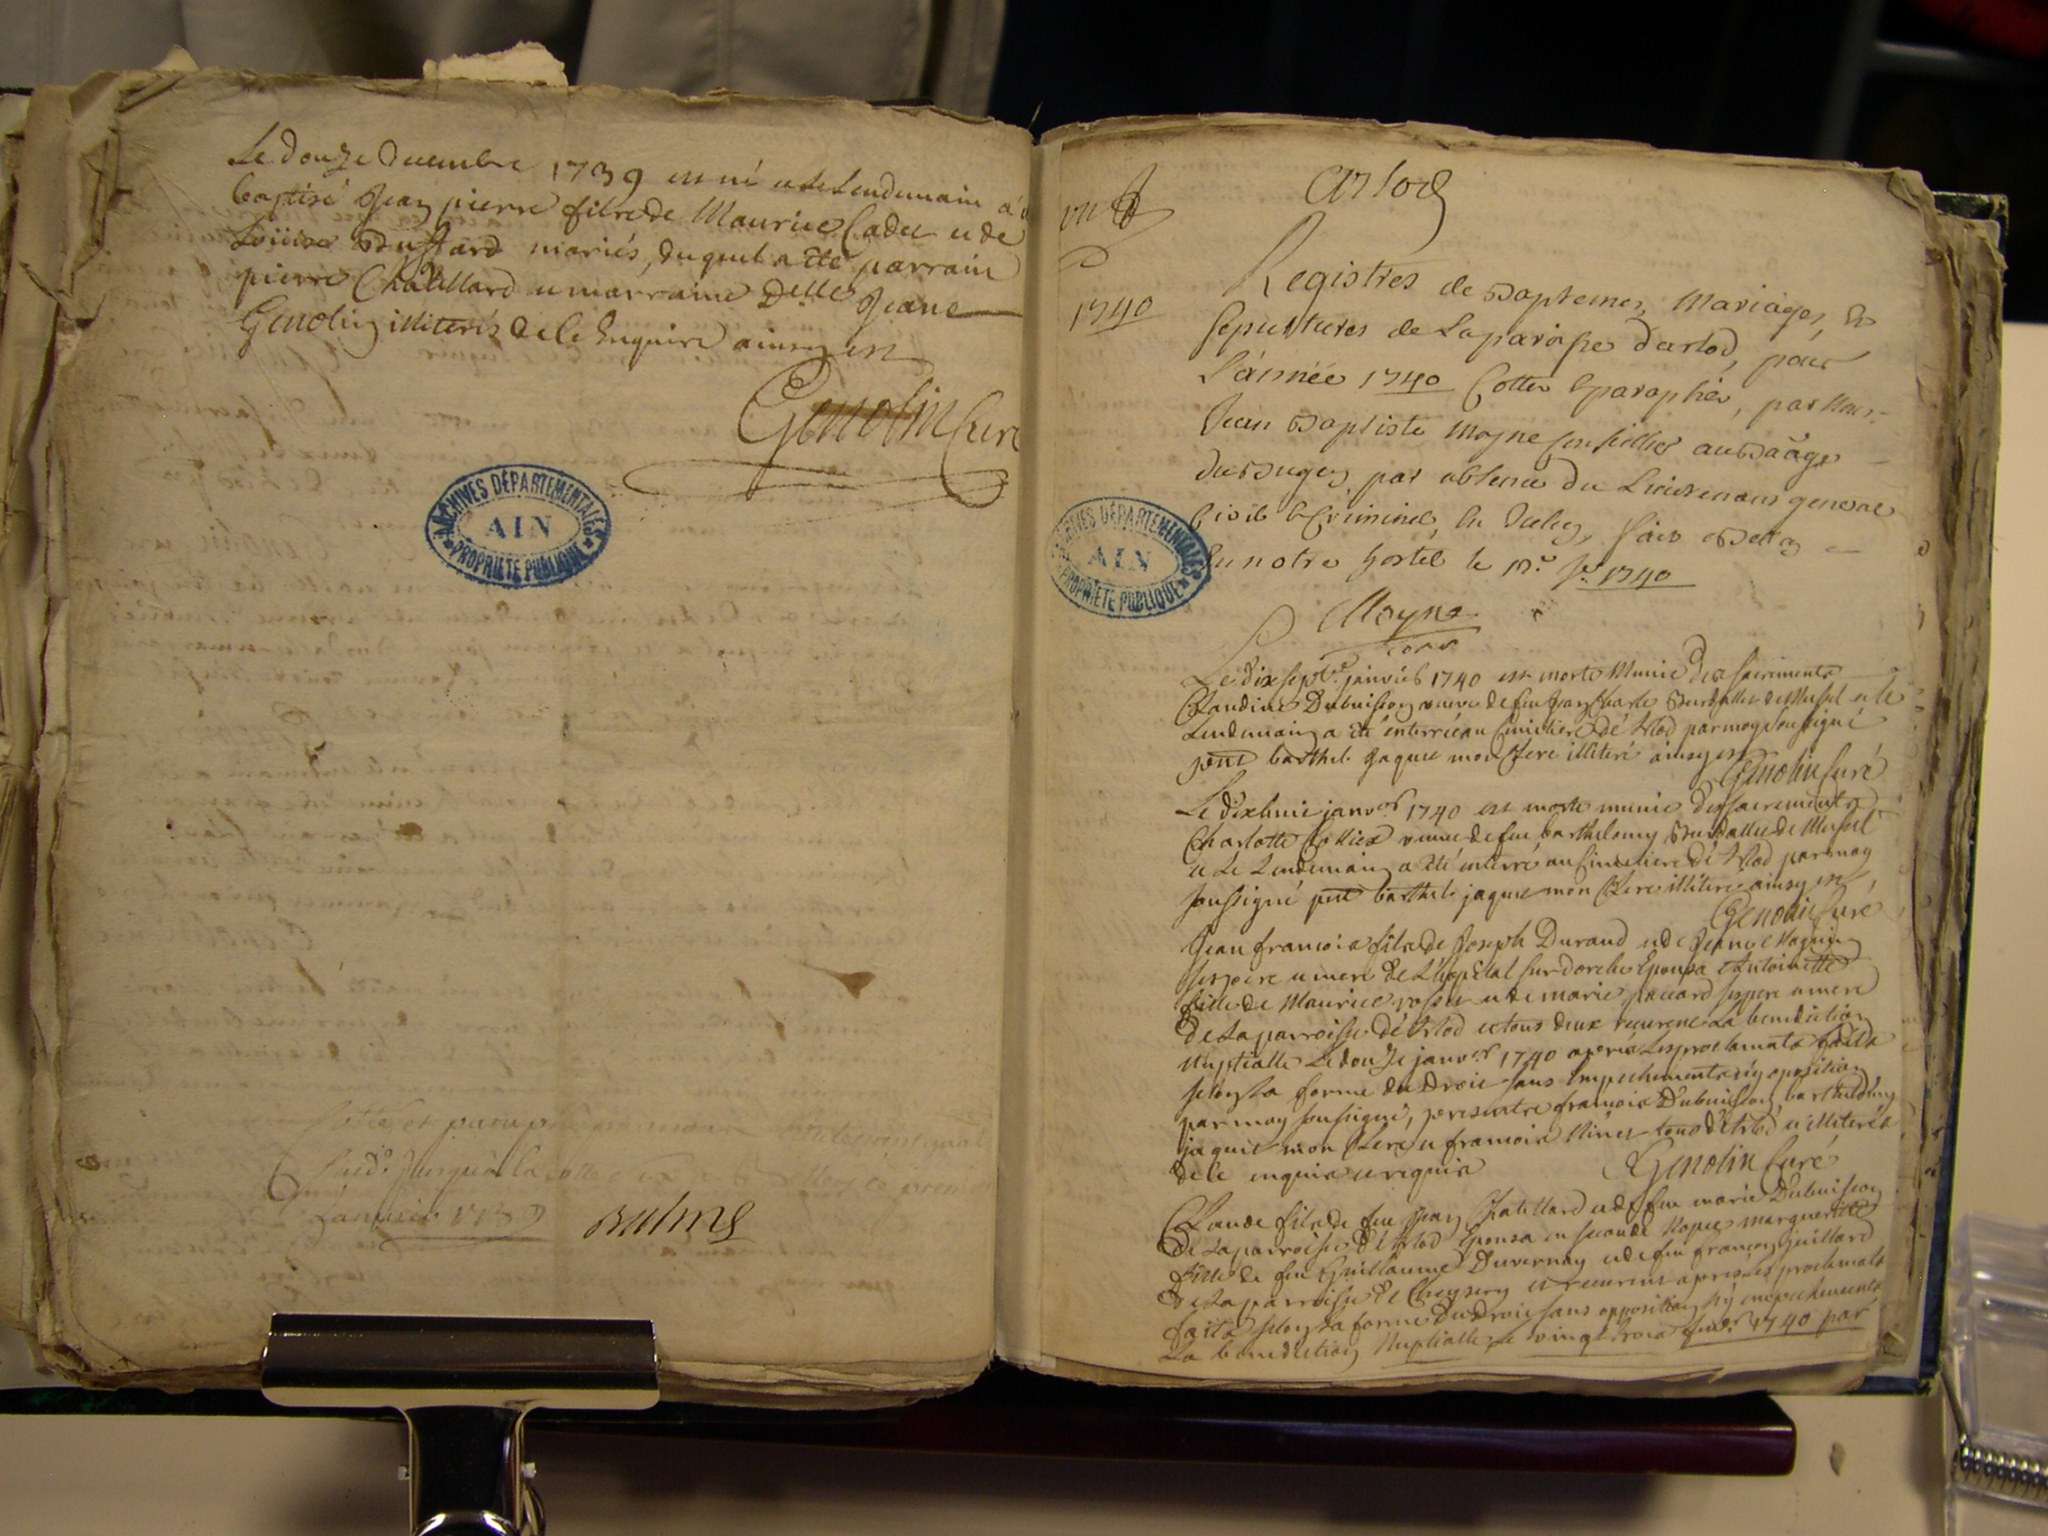 Le douze decembre 1739 est né et le Lendemain a été
baptisé Jean pierre fils de Maurice Cadet et de
Loüise Buffard mariés, duquel a été parrain
pierre Chatillard et marraine Delle Jeane
Genolin illiterés de ce Enquire ainsy est
Genolin Curé
ARCHIVES DÉPARTEMENTALES
AIN
PROPRIÉTÉ PUBLIQUE
jusqu'à la
janvier 1739
Balme
Arlod
1740
Registres de Baptemes, Mariages, Et
sepultures de La paroisse d'arlod, pour
L'année 1740 Cottés & paraphés, par Nous
Jean Baptiste Moyne Conseiller au Baäge
du Bugey par absence du Lieutenant general
Civil & Criminel En Icelluy, fait a Belley
En notre hostel le Pr. Jer 1740
Moyne
ARCHIVES DÉPARTEMENTALES
AIN
PROPRIÉTÉ PUBLIQUE
Le dix sept janvier 1740 est morte Munie des sacrements
Claudine Dubuisson veuve de feu Jean Charle Burdallet de Mussel et le
Lendemain a été enterrée au Cimitiere d'Arlod par moy soussigné
pnt barthel. jaquet mon Clerc illiteré ainsy est
Genolin Curé
Le dixhuit janvr 1740 est morte munie des sacrements
Charlotte Collier veuve de feu barthelemy Burdallet de Mussel
et Le Lendemain a été enterré au Cimetiere d'Arlod par moy
soussigné pnt barthel. jaquet mon Clerc illiteré ainsy est
Genolin Curé
Jean francois fils de Joseph Durand et de Jeane Magnin
ses pere et mere de L'hopital sur dorche Epousa Antoinette
fille de Maurice rosset et de marie paccard ses pere et mere
de La parroisse d'Arlod et tous deux recurent La benediction
Nuptialle Le douze janvr 1740 aprés Les proclamats faits
selon La forme du Droit sans Empechements ny oposition
par moy soussigné, pris entre francois Dubuisson barthelemy
jaquet mon Clerc et francois Minet tous d'Arlod et illiterés
de ce enquis et requis
Genolin Curé
Claude fils de feu Jean Chatillard et de feu marie Dubuisson
de La parroisse d'Arlod Epousa en seconde Nopce marguerite
fille de feu Guillaume Duvernay et de feu francoise Guillard
de La parroisse de Cheysery et recurent aprés Les proclamats
faits selon La forme du Droit sans opposition ny empechements
La benediction Nuptialle Le vingt trois janvr 1740 par